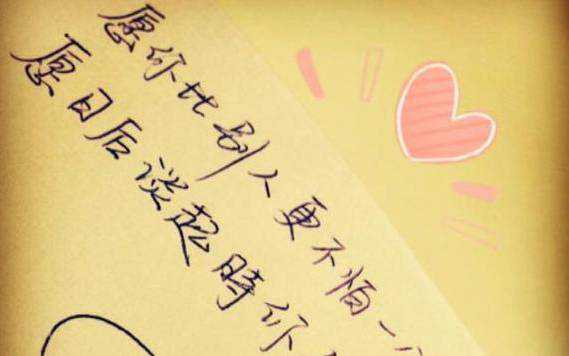 愿你比别人更不怕一
愿日后谈起時你